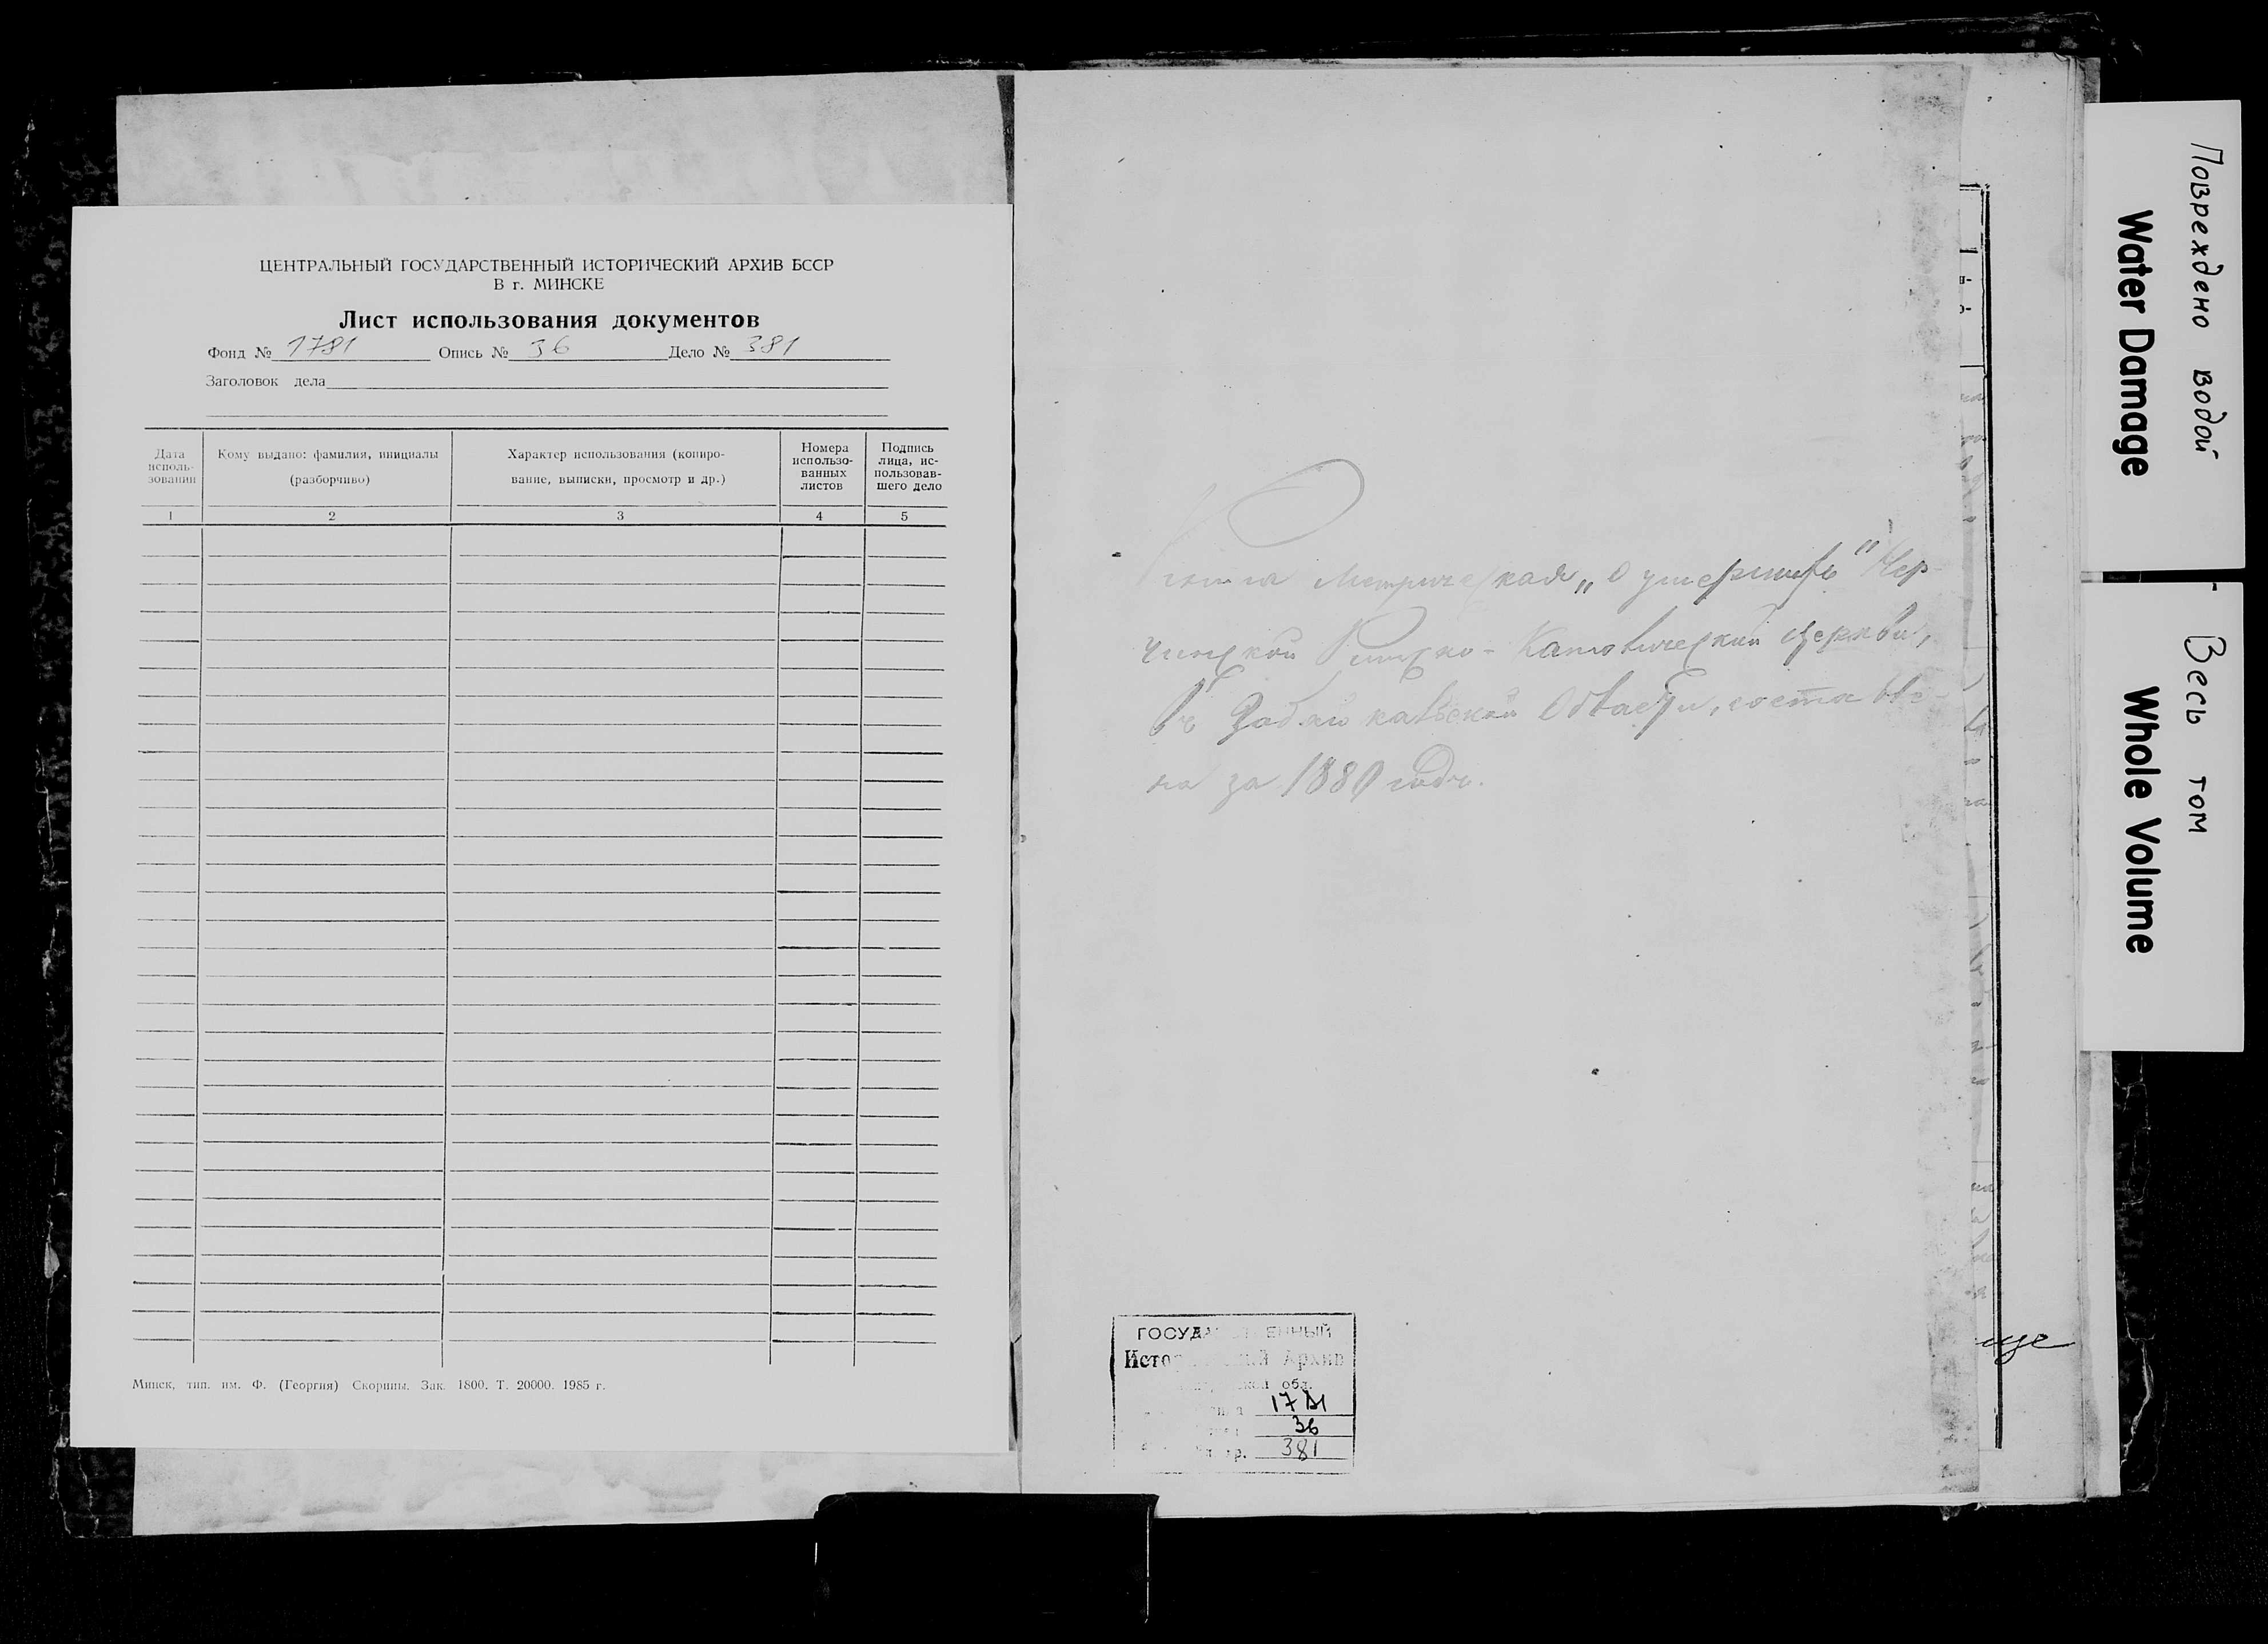 ЦЕНТРАЛЬНЫЙ ГОСУДАРСТВЕННЫЙ ИСТОРИЧЕСКИЙ АРХИВ БССР
В г. МИНСКЕ
Лист использования документов
Фонд № 1781 Опись № 36 Дело № 381
Заголовок дела
Дата исполь-зования
Кому выдано: фамилия, инициалы (разборчиво)
Характер использования (копиро-вание, выписки, просмотр и др.)
Номера использо-ванных листов
Подпись лица, ис-пользовав-шего дело
1 2 3 4 5
Минск, тип. им. Ф. (Георгия) Скорины. Зак. 1800. Т. 20000. 1985 г.
Книга Метрическая „О умершихъ" Нер-
чинской Римско-Католической церкви,
въ Забайкальской Области, составле-
на за 1880 годъ.
ГОСУДА ЕННЫЙ
Исто ий Архив
ской обл.
1781
36
р. 381
ще
Повреждено водой
Water Damage
Весь том
Whole Volume